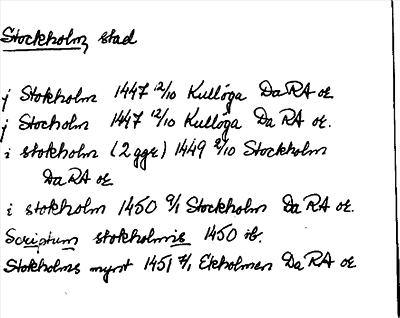 Stockholm, stad
j Stokholm 1447 12/10 Kullöga DaRA or.
j Stocholm 1447 12/10 Kullöga DaRA or.
i stokholm (2 ggr) 1449 2/10 Stockholm
DaRA or
i stokholm 1450 9/1 Stockholm DaRA or.
Scriptum stokholmis 1450 ib.
Stokholms mynt 1451 7/1 Ekholmen DaRA or